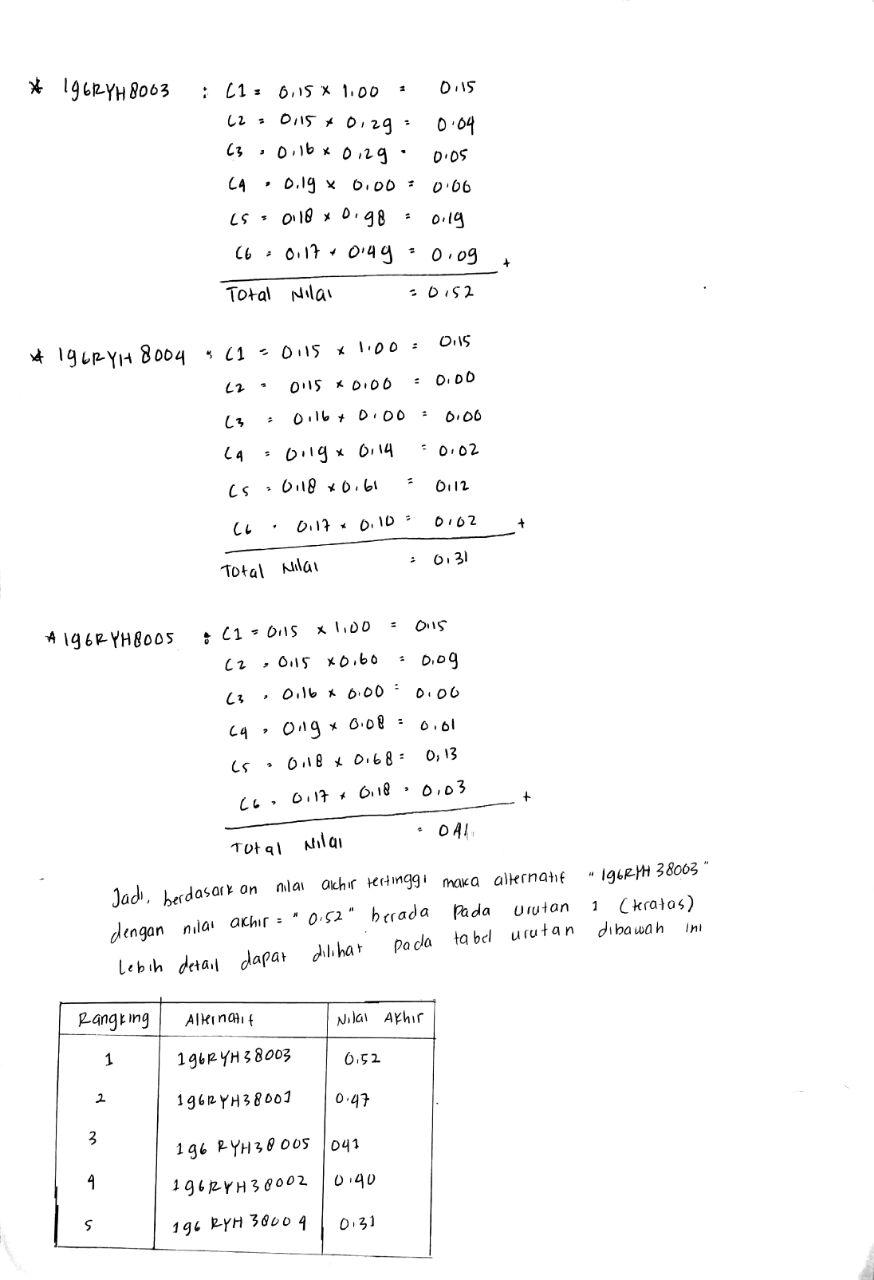 * 196RYH8003 : C1 = 0,15 x 1.00 = 0.15
C2 = 0,15 x 0,29 = 0.04
C3 = 0.16 x 0,29 = 0.05
C4 = 0.19 x 0,00 = 0.00
C5 = 0.18 x 0.98 = 0.19
C6 = 0.17 x 0.49 = 0.09 +
Total Nilai = 0.52
* 196RYH 8004 : C1 = 0.15 x 1.00 = 0.15
C2 = 0.15 x 0.00 = 0.00
C3 = 0.16 x 0.00 = 0.00
C4 = 0.19 x 0.14 = 0.02
C5 = 0.18 x 0.61 = 0.12
C6 = 0.17 x 0.10 = 0.02 +
Total Nilai = 0.31
* 196RYH8005 : C1 = 0.15 x 1.00 = 0.15
C2 = 0.15 x 0.60 = 0.09
C3 = 0.16 x 0.00 = 0.00
C4 = 0.19 x 0.08 = 0.01
C5 = 0.18 x 0.68 = 0,13
C6 = 0.17 x 0.18 = 0.03 +
Total Nilai = 041
Jadi, berdasarkan nilai akhir tertinggi maka alternatif "196RYH 38003"
dengan nilai akhir = "0.52" berada Pada urutan 1 (kratas)
Lebih detail dapat dilihat Pada tabel urutan dibawah ini
Rangking Alternatif Nilai Akhir
1 196RYH38003 0.52
2 196RYH38001 0.47
3 196 RYH38005 041
4 196RYH38002 0.40
5 196 RYH 38004 0.31